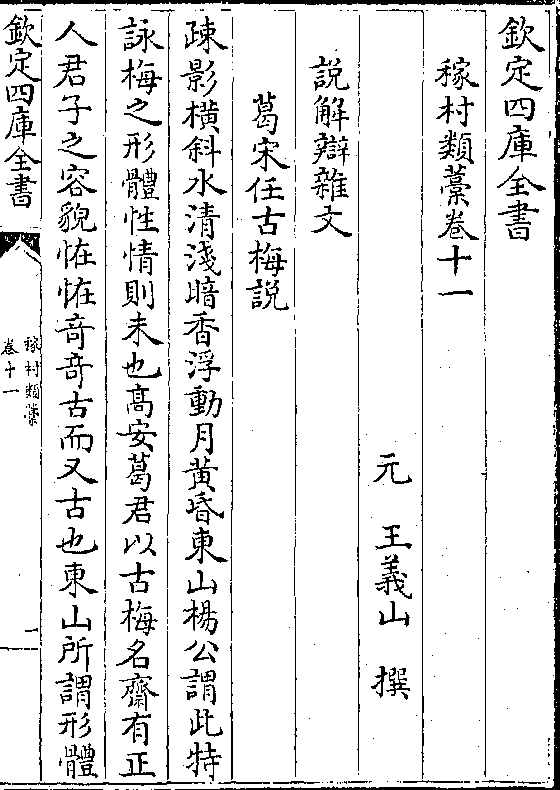 欽定四庫全書
稼村類藁卷十一
元 王義山 撰
說解辯雜文
葛宋任古梅説
疎影橫斜水清淺暗香浮動月黄昏東山楊公謂此特
詠梅之形體性情則未也髙安葛君以古梅名齋有正
人君子之容貌恠恠竒竒古而又古也東山所謂形體
欽定四庫全書
稼村類藁
卷十一
一